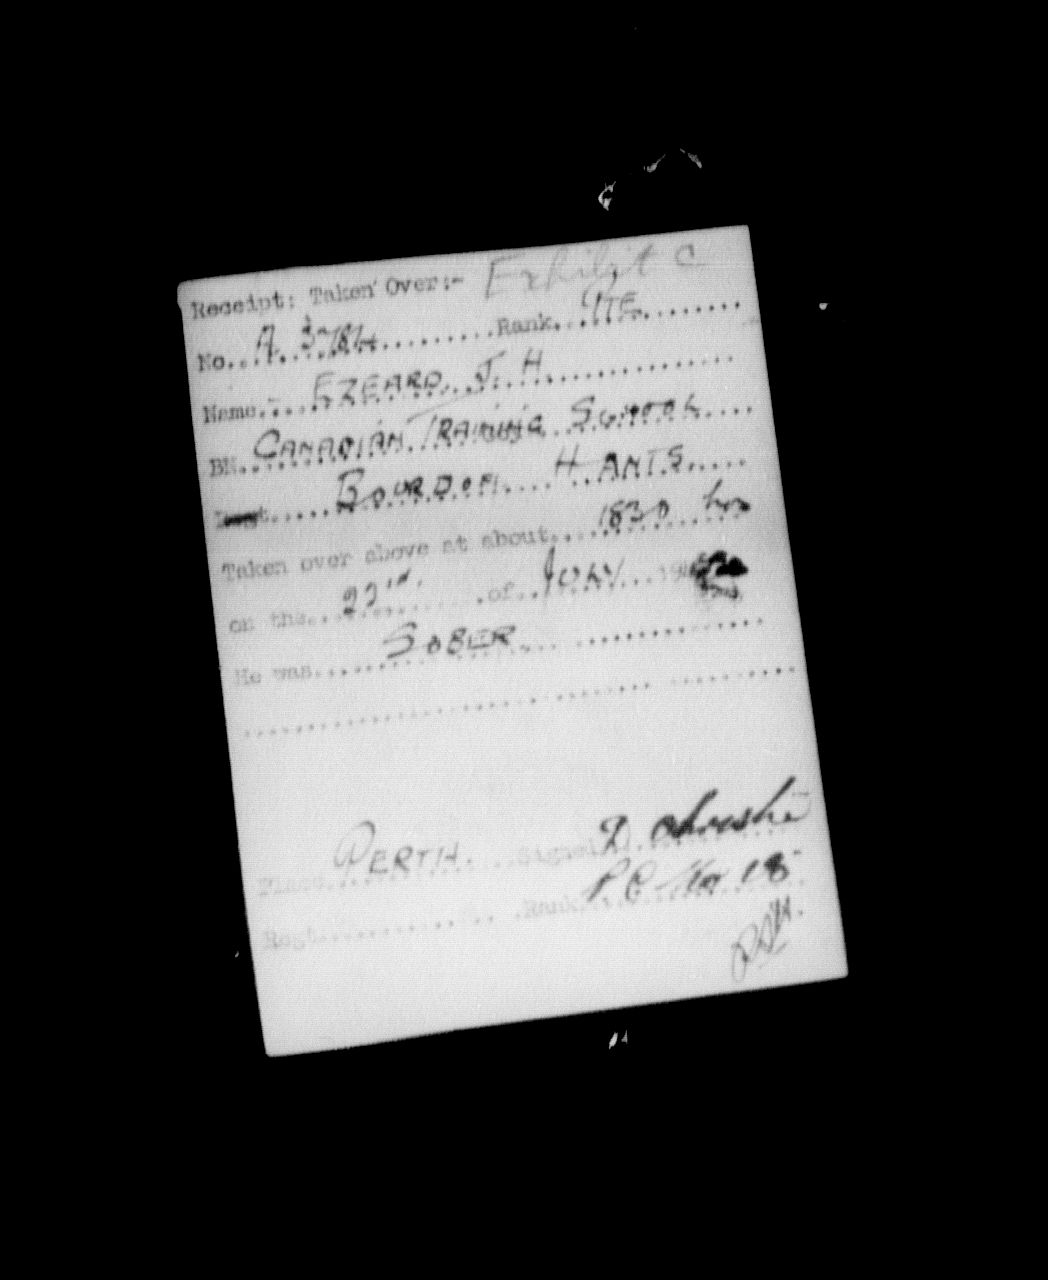 Receipt: Taken Over:- Exhibit C
No.. A 3784 ..........Rank... PTE ........
Name.:.. EZEARD, J. H. ..............
BN.. CANADIAN TRAINING SCHOOL ....
..... BOURDON .... HANTS .....
Taken over above at about... 1830 hrs
on the... 22nd. .of.. JULY ... 19
He was...... SOBER ... .............
Place... PERTH .....Signed
Regt............. .Rank... P C No 18